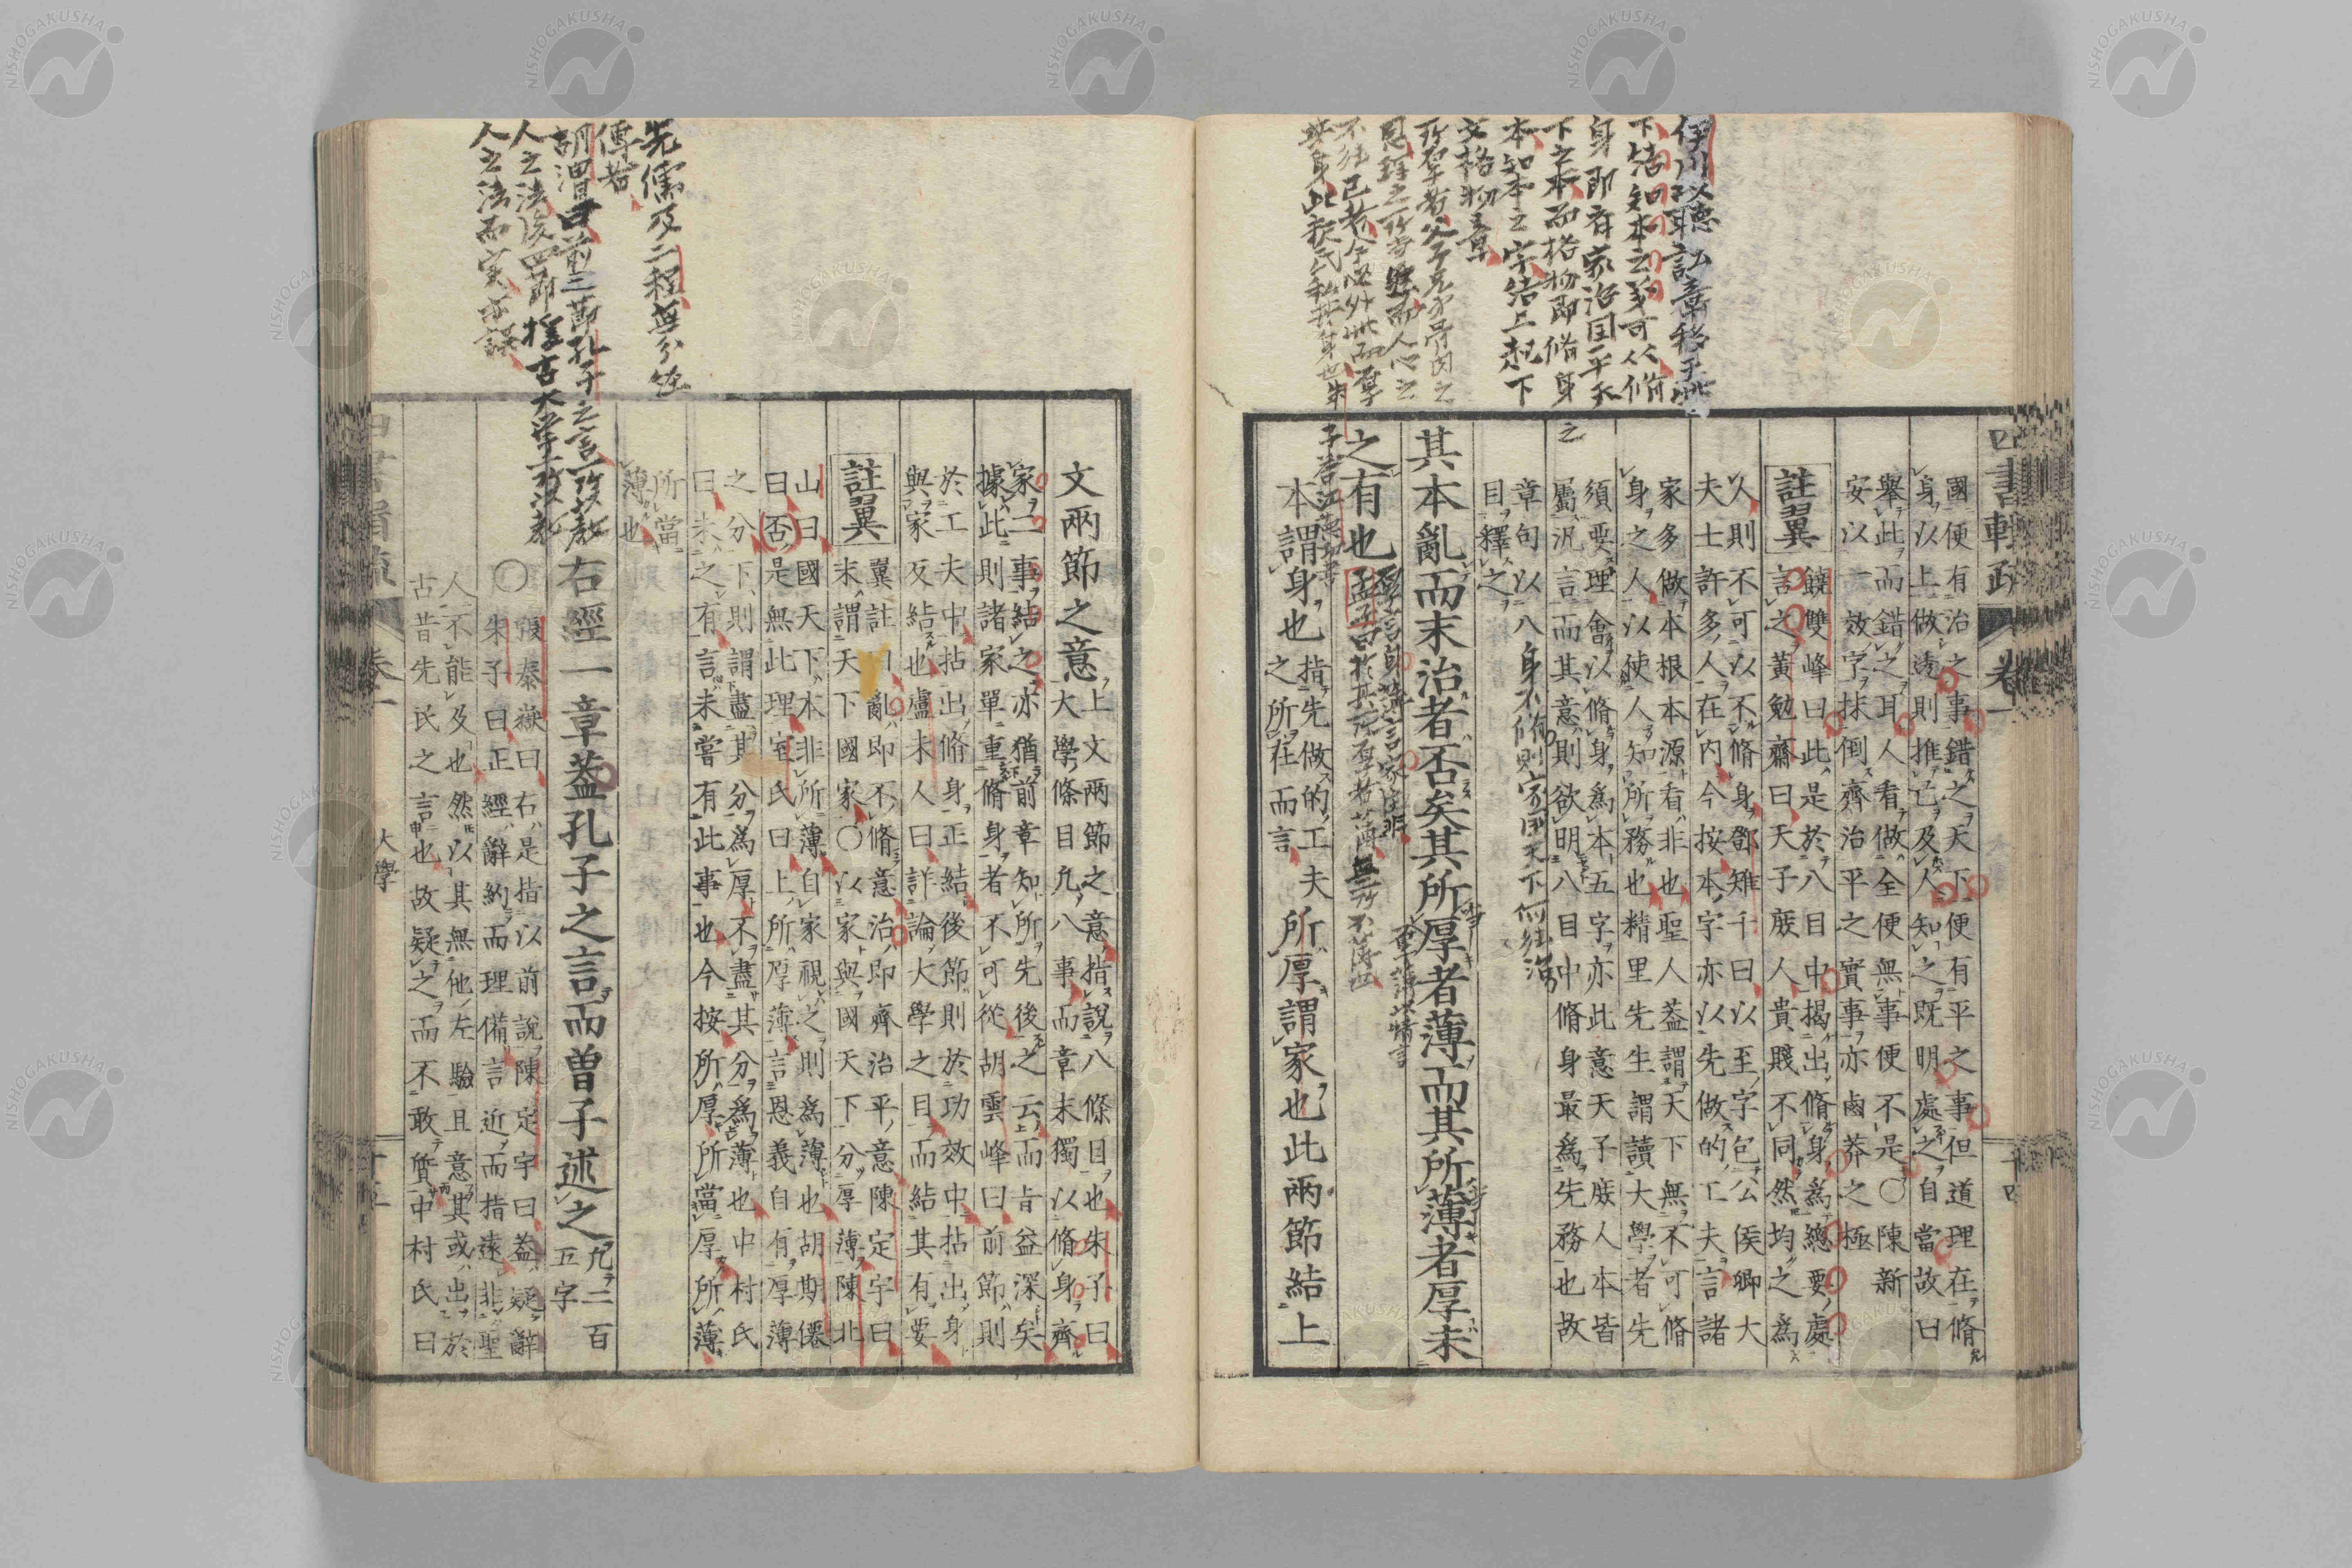 國便有治之事錯之天下便有平之事但道理在脩
身以上做透則推己及人知之既明處之自當故曰
舉此而錯之耳人看做全便無事便不是〇陳新
安以一效字抹倒齊治平之實事亦鹵莽之極
註翼
饒雙峰曰此是於八目中揭出脩身為總要處
言之黃勉齋曰天子庶人貴賤不同然均之為
人則不可以不脩身鄧雉千曰以至字包公侯卿大
夫士許多人在內今按本字亦以先做的工夫言諸
家多做本根本源看非也聖人蓋謂天下無不可脩
身之人以使人知所務也精里先生謂讀大學者先
須要理會以脩身為本五字亦此意天子庶人本皆
屬汎言而其意則欲明八目中脩身最為先務也故
章句以八
目釋之
身不脩則家國天下何能治
其本亂而末治者否矣其所厚者薄而其所薄者厚未
之有也
本謂身也
指先做的工夫
之所在而言
所厚謂家也此兩節結上
四書輯疏
卷一
十四
伊川以聽訟章移于此
下結知本之義可以脩
身即齊家治国平天
下之本而格物即脩身
本知本之字結上起下
文格物章
文兩節之意
上文兩節之意指說八條目也朱子曰
大學條目凡八事而章末獨以脩身齊
家二事結之亦猶前章知所先後之云而旨益深矣
據此則諸家單重脩身者不可從胡雲峰曰前節則
於工夫中拈出脩身正結後節則於功效中拈出身
與家反結也盧未人曰詳論大學之目而結其有要
註翼
翼註曰亂即不脩意治即齊治平意陳定宇曰
末謂天下國家〇以家與國天下分厚薄陳北
山曰國天下本非所薄自家視之則為薄也胡期僊
曰否是無此理室氏曰上所厚薄言恩義自有厚薄
之分下則謂盡其分為厚不盡其分為薄也中村氏
曰未之有言未嘗有此事也今按所厚所當厚所薄
所當
薄也
右經一章蓋孔子之言而曾子述之
凡二百
五字
張秦嶽曰右是指以前說陳定宇曰蓋疑辭
〇朱子曰正經辭約而理備言近而指遠非聖
人不能及也然以其無他左驗且意其或出於
古昔先民之言也故疑之而不敢質中村氏曰
大學
先儒及二程無分経
傳者
胡渭曰前三節孔子之言所以教
人之法後四節擧古大學所以教
人之法而実亦誤